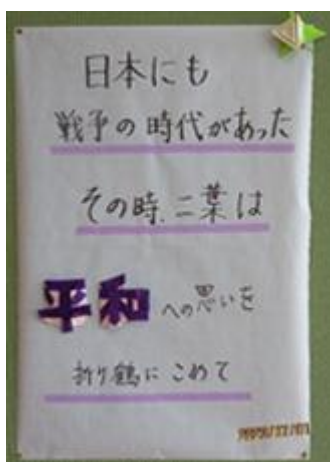 日本にも
戦争の時代があった
その時、二葉は
平和への思いを
折り鶴にこめて